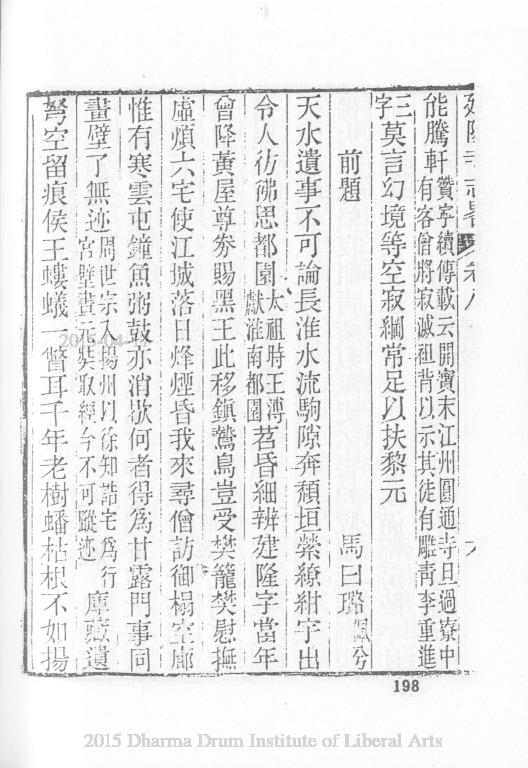 建隆寺志畧 卷八 六
能騰軒贊寧續傳載云開寶末江州圓通寺旦過寮中有客僧將寂滅祖背以示其徒有雕靑李重進
三字莫言幻境等空寂綱常足以扶黎元
前題 馬曰璐佩兮
天水遺事不可論長淮水流駒隙奔頹垣縈繚紺宇出
令人彷彿思都園太祖時王溥獻淮南都園苕昏細辨建隆字當年
曾降黃屋尊券賜黑王此移鎭鷙鳥豈受樊籠樊慰撫
虛煩六宅使江城落日烽煙昏我來尋僧訪御榻空廊
惟有寒雲屯鐘魚粥鼓亦消歇何者得爲甘露門事同
畫壁了無迹周世宗入揚州以徐知誥宅爲行宮壁畫元奘取經今不可蹤迹 摩藏遺
弩空留痕侯王螻蟻一瞥耳千年老樹蟠枯根不如揚
198
2015 Dharma Drum Institute of Liberal Arts